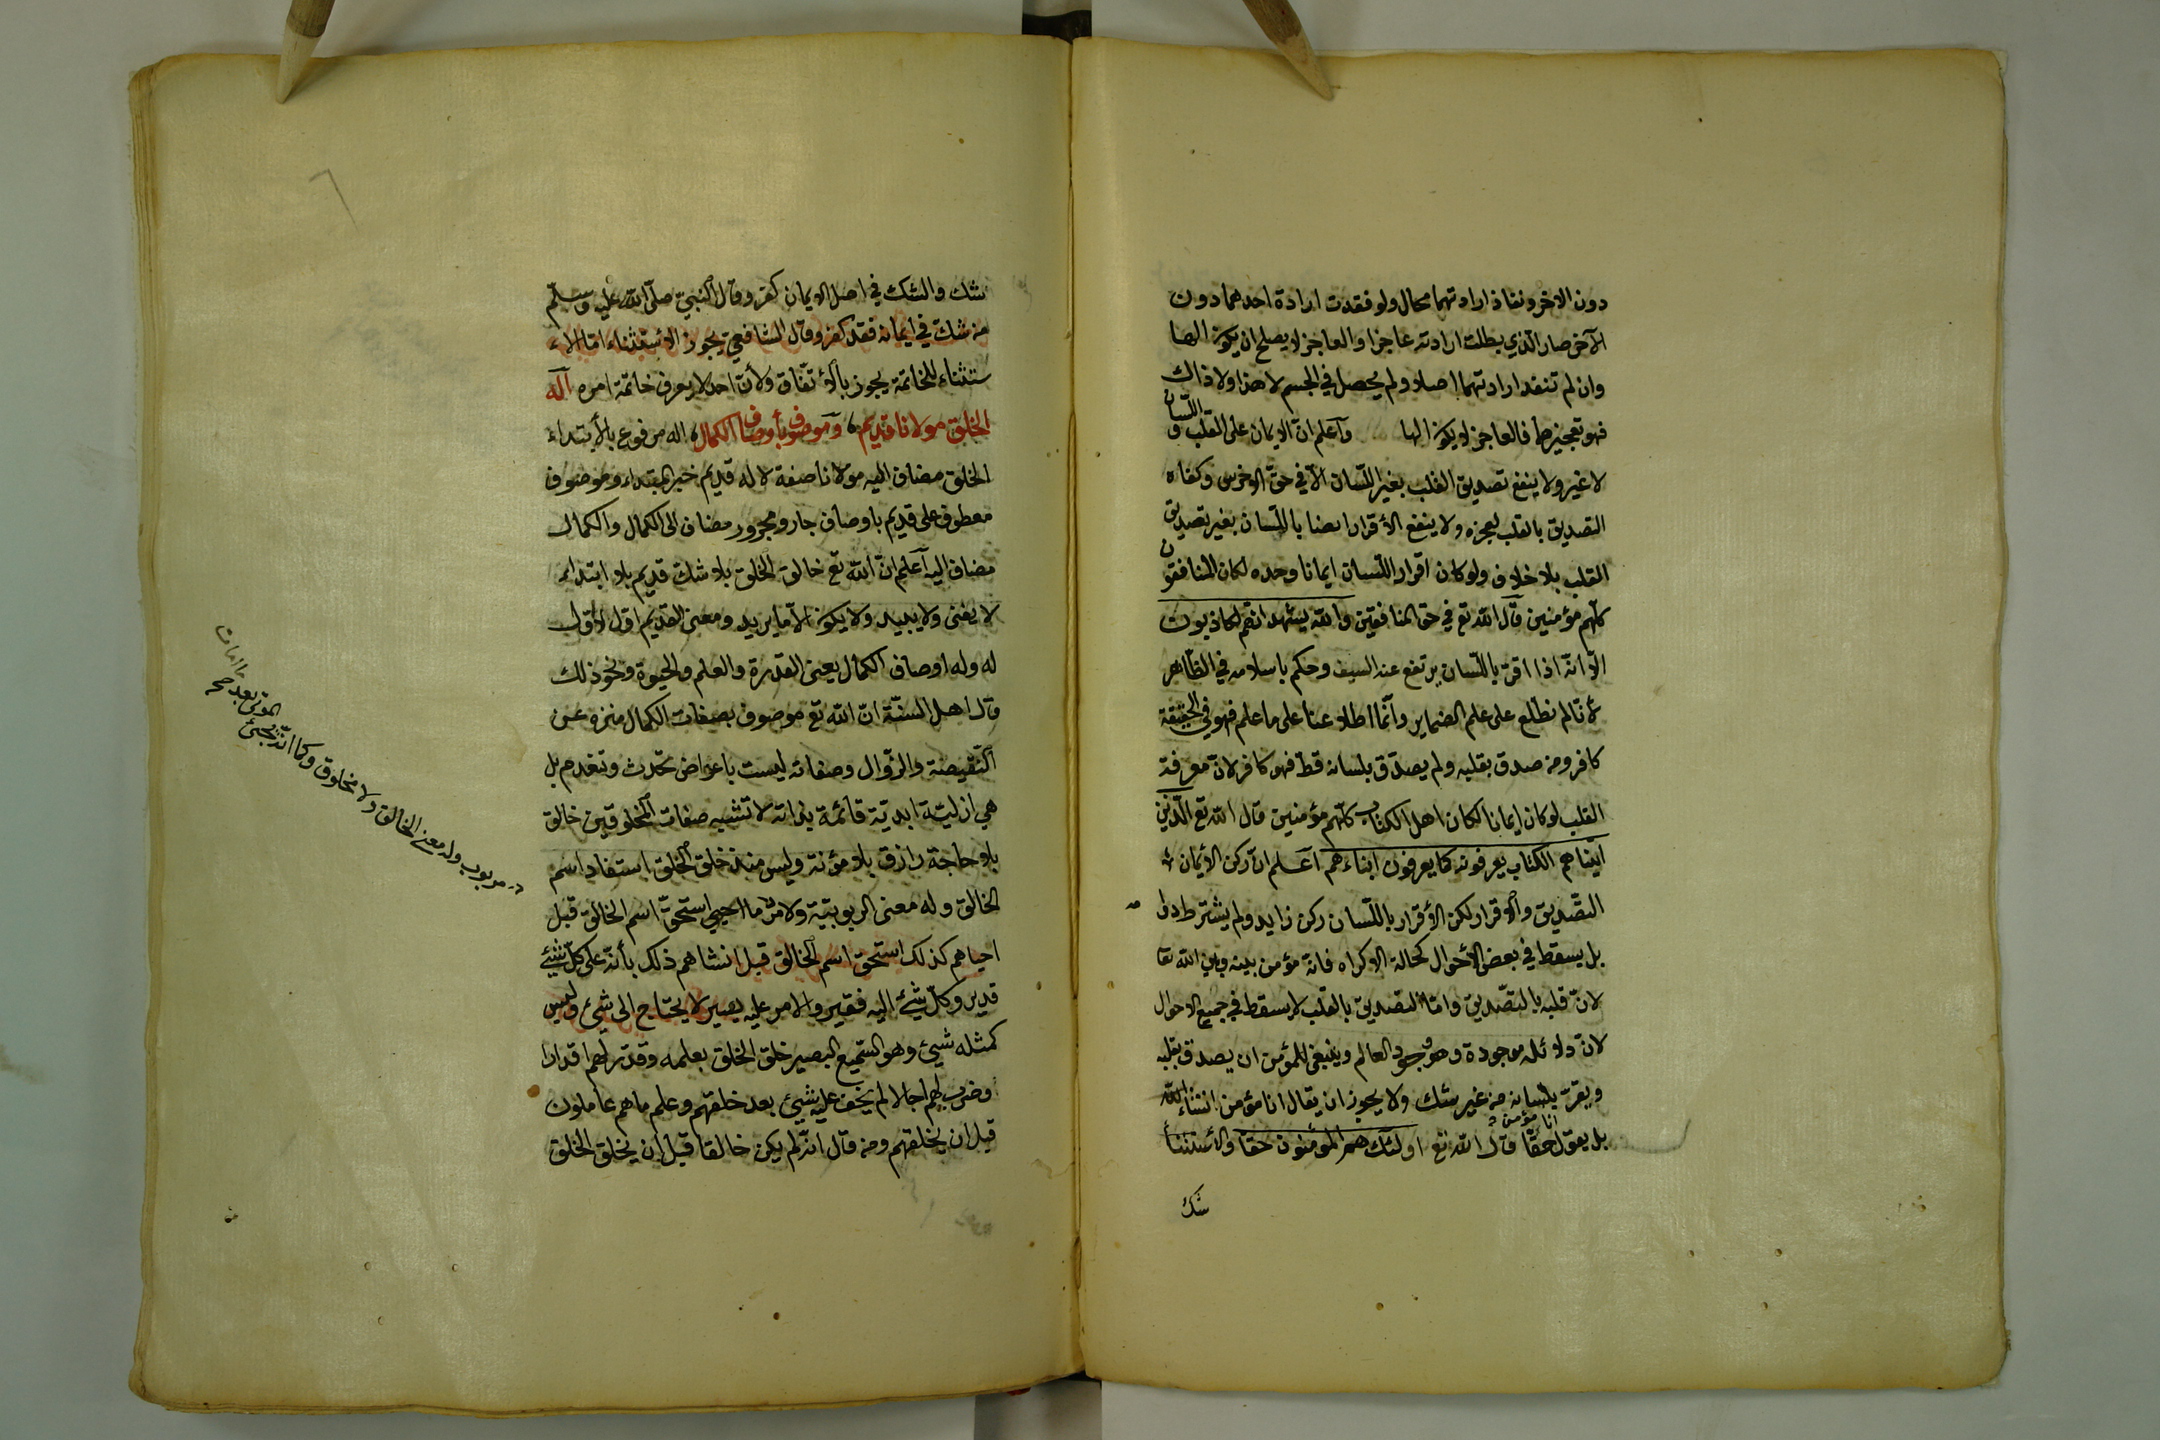 دون الاخر ونفاذ ارادتهما محال ولو فقدت ارادة احدهما دون
الآخر صار الذي بطلت ارادته عاجزا والعاجز لا يصلح ان يكون الها
وان لم تنفد ارادتهما اصلا ولم يحصل في الجسم لا هذا ولا ذاك
فهو تعجيزهما فالعاجز لا يكون الها واعلم انّ الايمان على القلب و اللّسان
لا غير ولا ينفع تصديق القلب بغير اللّسان الّا في حقّ الاخرس وكفاه
التصديق بالقلب لعجزه ولا ينفع الأقرار ايضا باللّسان بغير تصديق
القلب بلا خلاف ولو كان اقرار اللّسان ايمانا وحده لكان المنافقون
كلّهم مؤمنين قال الله تع في حق المنافقين والله يشهد انّهم لكاذبون
الّا انّه اذا اقرّ باللّسان يرتفع عنه السيف وحكم باسلامه في الظاهر
لأنّا لم نطلع على علم الضماير وانّما اطلاعنا على ما علم فهو في الحقيقة
كافر ومن صدق بقلبه ولم يصدّق بلسانه قطّ فهو كافر لانّ معرفة
القلب لو كان إيمانا لكان اهل الكتاب كلّهم مؤمنين قال الله تع الّذين
آتيناهم الكتاب يعرفونه كما يعرفون ابناءهم اعلم انّ ركن الأيمان
التصّديق والأقرار لكن الأقرار باللّسان ركن زايد ولم يشترط دوا
بل يسقط في بعض الأحوال كحالة الاكراه فانّه مؤمن بينه وبين الله تعا
لانّ قلبه بالتصّديق وامّا التصّديق بالقلب لا يسقط في جميع الاحوال
لانّ دلائله موجودة وهو وجود العالم وينبغي للمؤمن ان يصدق بقلبه
ويقرّ بلسانه من غير شك ولا يجوز ان يقال انا مؤمن انشاء الله
بل يقول انا مؤمن حقّا قال الله تع اولئك هم المؤمنون حقّا والأستثنأ
شك
شك والشك في اصل الايمان كفر وقال النبيّ صلّى الله عليه وسلّم
من شكّ في ايمانه فقد كفر وقال الشافعي يجوز الاستثناء امّا الاء
ستثناء للخاتمة يجوز بالاتّفاق ولأنّ احد لا يعرف خاتمة امره اله
الخلق مولانا قديم وموصوف بأوصاف الكمال اله مرفوع بالأبتداء
الخلق مضاف اليه مولانا صفة لاله قديم خبر المبتداء وموصوف
معطوف على قديم باوصاف جار ومجرور مضاف الى الكمال والكمال
مضاف اليه اعلم انّ الله تع خالق الخلق بلا شكّ قديم بلا ابتداء
لا يفنى ولا يبيد ولا يكون الّا ما يريد ومعنى القديم اوّل لا اوّل
له وله اوصاف الكمال يعنى القدرة والعلم والحيوة ونحو ذلك
قال اهل السنّة انّ الله تع موصوف بصفات الكمال منزه عن
النّقيصة والزّوال وصفاته ليست باعراض تحدث وتنعدم بل
هي ازليّة ابديّة قائمة بذاته لا تشبه صفات المخلوقين خالق
بلا حاجة رازق بلا مؤنة وليس منذ خلق الخلق استفاد اسم
الخالق وله معنى الربوبيّة ولا مربوب ما احيي استحقّ اسم الخالق قبل
احياهم كذلك استحقّ اسم الخالق قبل انشاهم ذلك بأنّه على كلّ شئ
قدير وكلّ شئ اليه فقير والامر عليه يسير لا يحتاج الى شئ وليس
كمثله شئ وهو السّميع البصير خلق الخلق بعلمه وقدّر لهم اقدارا
وضرب لهم اجالا لم يخف عليه شئ بعد خلقهم وعلم ما هم عاملون
قبل ان يخلقهم ومن قال انّه لم يكن خالقا قبل ان يخلق الخلق
مربوب وله معنى الخالق ولا مخلوق وكما انّه محيي
الموتى بعد